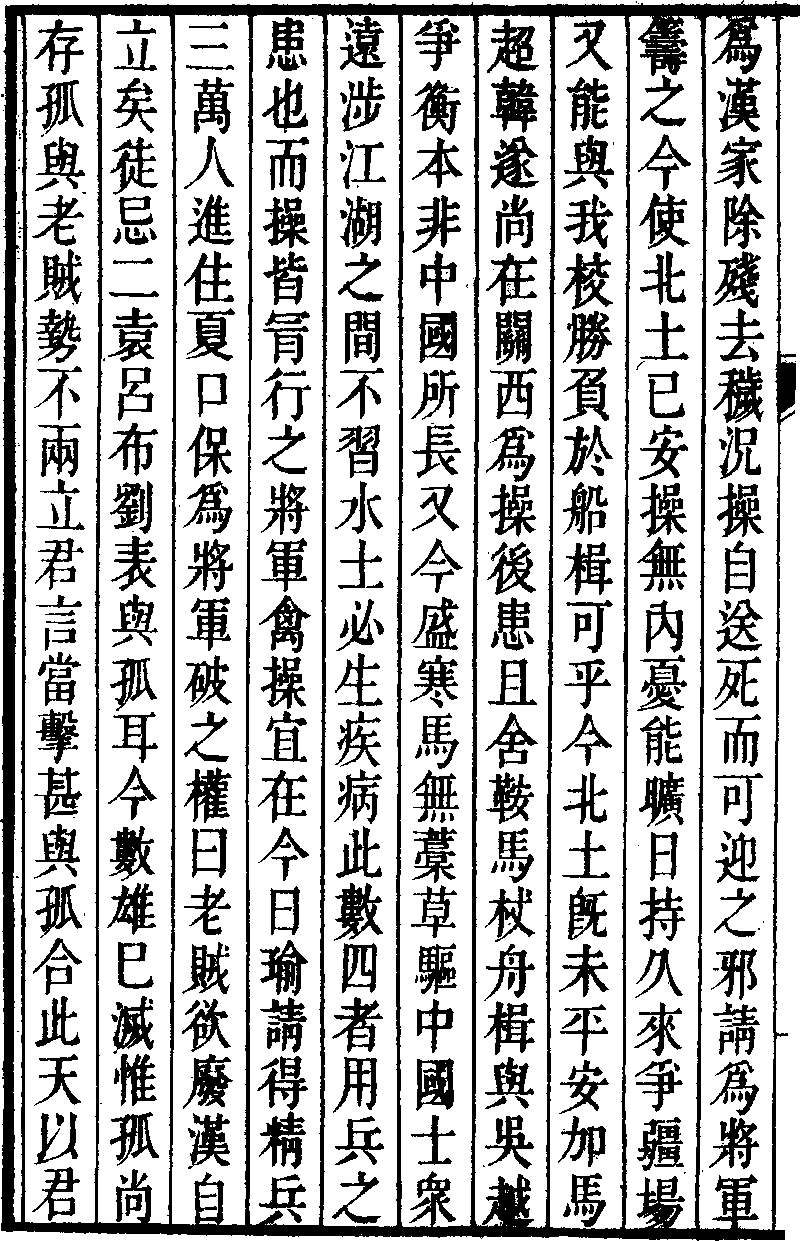 爲漢家除殘去穢況操自送死而可迎之邪請爲將軍
籌之今使北土已安操無內憂能曠日持久來爭疆場
又能與我校勝負於船楫可乎今北土旣未平安加馬
超韓遂尚在關西爲操後患且舍鞍馬杖舟楫與吳越
爭衡本非中國所長又今盛寒馬無藁草驅中國士衆
遠涉江湖之間不習水土必生疾病此數四者用兵之
患也而操皆冒行之將軍禽操宜在今日瑜請得精兵
三萬人進住夏口保爲將軍破之權曰老賊欲廢漢自
立矣徒忌二袁呂布劉表與孤耳今數雄已滅惟孤尚
存孤與老賊勢不兩立君言當擊甚與孤合此天以君